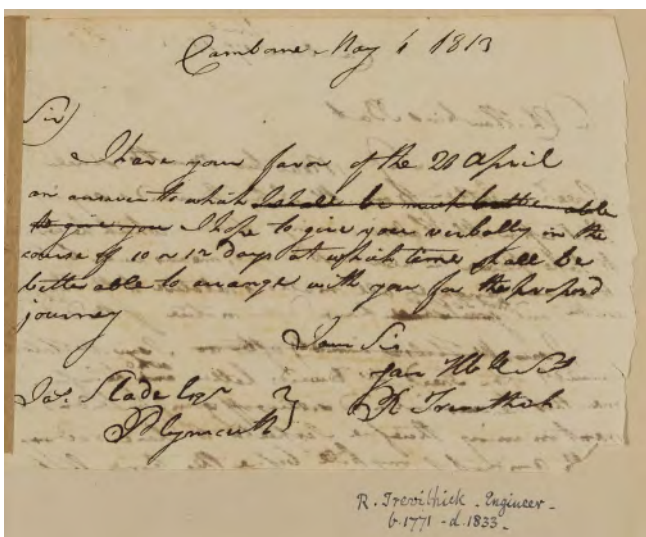 Camborne May 6 1813
Sir)
I have your favor of the 20 April
an answer to which I shall be much better able
to give you I hope to give you verbally in the
course of 10 or 12 days at which time shall be
better able to arrange with you for the propos'd
journey
I am Sir
your Hble St
R Trevithick
Jas. Slade Esqr
Plymouth
R. Trevithick - Engineer -
b. 1771 - d. 1833 -